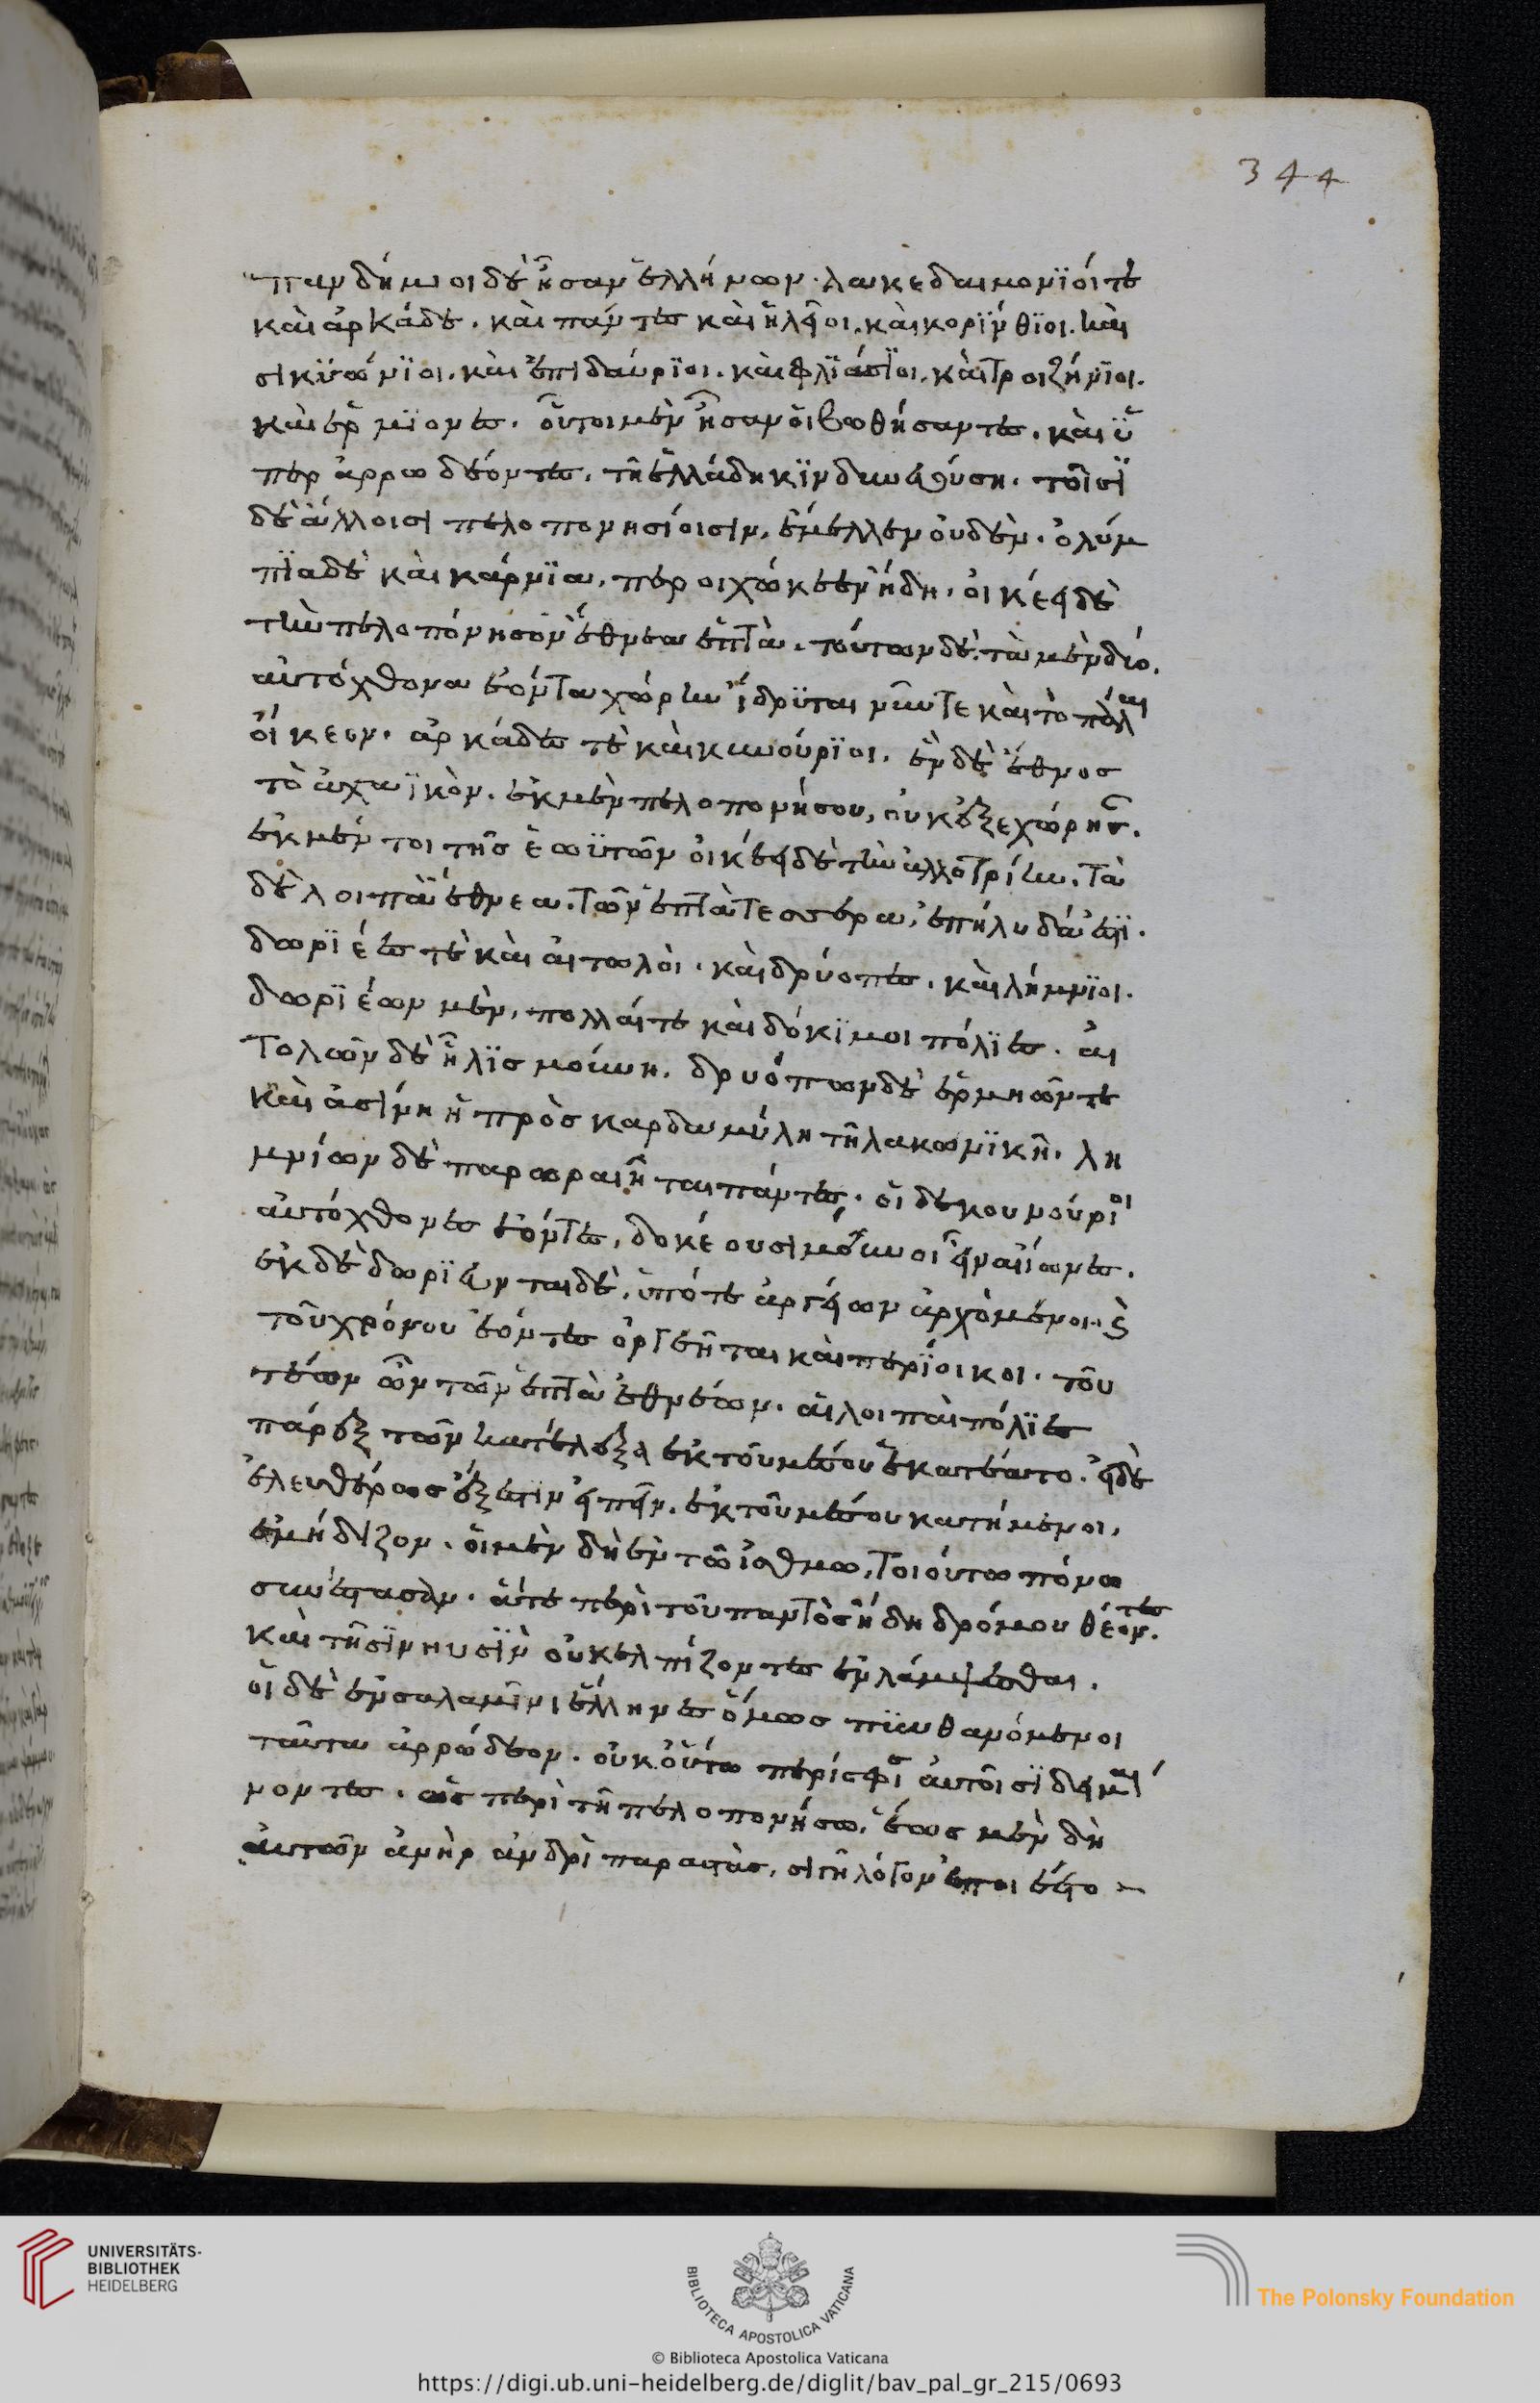 344
πανδήμω οἱ δὲ ἦσαν ἑλλήνων. λακεδαιμονϊοί τε
καὶ ἀρκάδε. καὶ πάντες καὶ ἠλεῖοι. καὶ κορΐνθϊοι. καὶ
σικϋώνϊοι. καὶ ἐπιδαύρϊοι. καὶ φλϊάσϊοι. καὶ τροιζήνϊοι.
καὶ ἑρμϊονες. οὗτοι μὲν ἦσαν οἱ βωθήσαντες. καὶ ὑ
περαρρωδέοντες. τῆ ἑλλάδη κϊνδυνευούση. τοῖσϊ
δὲ ἄλλοισι πελοπονησίοισιν, ἔμελλεν οὐδὲν. ὀλύμ
πϊα δὲ καὶ κάρνϊα, παροιχώκεεν ἤδη. οἰκέει δὲ
τὴν πελοπόνησον ἔθνεα ἑπτὰ. τούτων δὲ. τὰ μὲν δύο.
αὐτόχθονα ἐόντα χώρην ἵδρϋται νῦν τε καὶ τὸ πάλαι
οἴκεον. ἀρκάδες τὲ καὶ κυνούρϊοι. ἓν δὲ ἔθνος
τὸ ἀχαϊκὸν. ἐκ μὲν πελοπονήσου, οὐκ ἐξεχώρησε.
ἐκ μέντοι τῆς ἑωϋτῶν οἰκέει δὲ τὴν ἀλλοτρίην. τὰ
δὲ λοιπὰ ἔθνεα. τῶν ἑπτὰ τεσσέρα, ἐπήλυδά ἐστϊ.
δωρϊέες τὲ καὶ αἰτωλοὶ. καὶ δρύοπες. καὶ λήμνϊοι.
δωρϊέων μὲν, πολλαί τε καὶ δόκϊμοι πόλϊες. αἰ
τολῶν δὲ ἦλϊς μούνη. δρυόπων δὲ ἑρμηών τε
καὶ ἀσίνη ἡ πρὸς καρδαμύλη τῆ λακωνϊκῆ. λη
μνίων δὲ παρωραιῆται πάντες. οἱ δὲ κουνούριοι
αὐτόχθονες ἐόντες, δοκέουσι μοῦνοι εἶναι ἴωνες.
ἐκδεδωρϊευνται δὲ, ὑπό τε ἀργείων ἀρχόμενοι. καὶ
τοῦ χρόνου ἐόντες ὀργεῆται καὶ περϊοικοι. τοῦ
τέων ὦν τῶν ἑπτὰ ἐθνέων. αἱ λοιπαὶ πόλϊες
πάρεξ τῶν κατέλεξα ἐκ τοῦ μέσου ἐκατέατο. εἰ δὲ
ἐλευθέρως ἔξεστϊν εἰπεῖν. ἐκ τοῦ μέσου κατήμενοι,
ἐμήδιζον. οἱ μὲν δὴ ἐν τῶ ἰσθμω, τοιούτω πόνω
συνέστασαν. ἅτε περὶ τοῦ παντὸς ἤδη δρόμου θέοντες.
καὶ τῆσϊ νηυσϊν οὐκ ἐλπίζοντες ἐλλάμψεσθαι.
οἱ δὲ ἐν σαλαμῖνι ἕλληνες ὅμως πϋνθανόμενοι
ταῦτα ἀρρώδεον. οὐκ οὕτω περί σφισι αὐτοῖσϊ δειμαί
νοντες. ὡς περὶ τῆ πελοπονήσω. ἕως μὲν δὴ
αὐτῶν ἀνὴρ ἀνδρὶ παραστὰς, σιγῆ λόγον ἐποιέετο
UNIVERSITÄTS-
BIBLIOTHEK
HEIDELBERG
BIBLIOTECA APOSTOLICA VATICANA
The Polonsky Foundation
© Biblioteca Apostolica Vaticana
https://digi.ub.uni-heidelberg.de/diglit/bav_pal_gr_215/0693